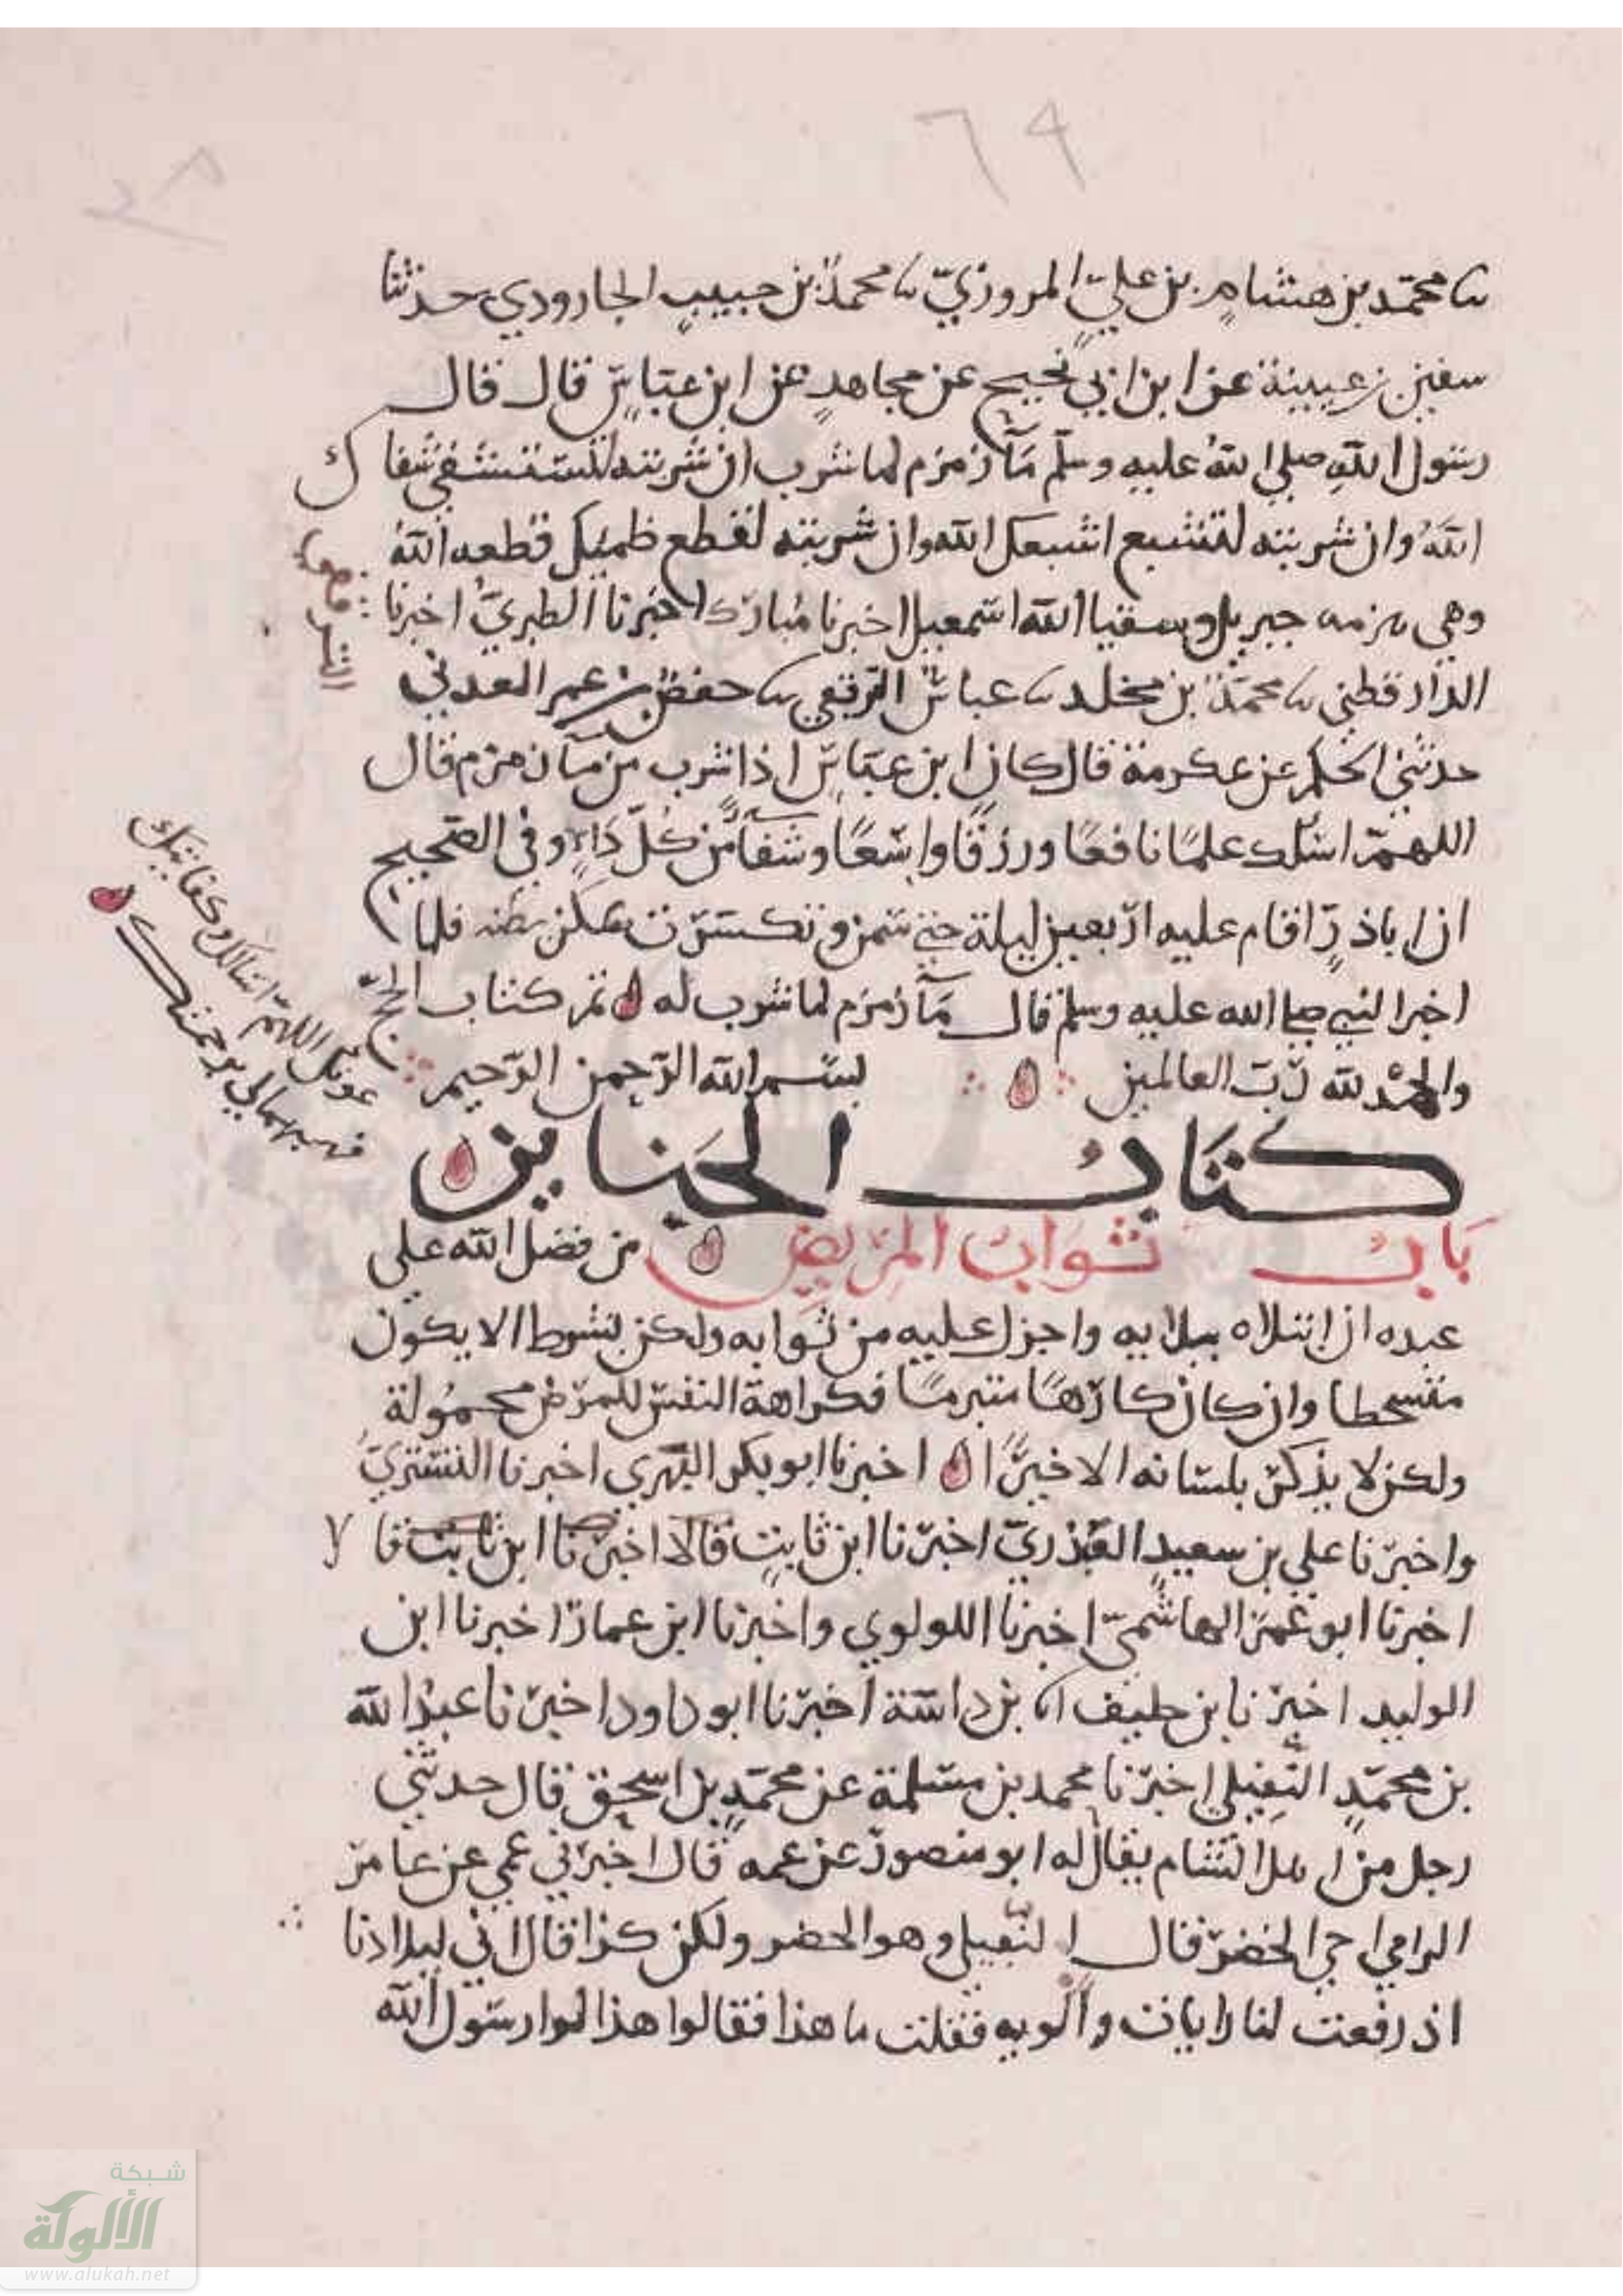 ٦٩
نا محمّد بن هشام بن عليّ المروزيّ نا محمدُ بن حبيبٍ الجارودي حدثنا
سفين بن عيينة عن ابن ابي نجيح عن مجاهدٍ عن ابن عبّاسٍ قال قال
رسول اللهِ صلى اللهُ عليه وسلّم مآ زمزم لما شرب ان شربته لتستشفي شفاك
اللهُ وان شربته لتشبع اشبعك الله وان شربته لقطع ظميك قطعه اللهُ
وهي هزمه جبريل وسقيا الله اسمعيل اخبرنا مُبارك اخبرنا الطبريُّ اخبرنا
الدارقطني نا محمّدُ بن مخلد نا عباسُ الترقفي نا حفصُ بن عمر العدني
حدثني الحكم عن عكرمة قال كان ابن عبّاسٍ اذا شرب من مآ زمزم قال
اللهمّ اسلك علمًا نافعًا ورزقًا واسعًا وشفآً من كلّ دَآءٍ وفي الصحيح
ان ابا ذرٍّ اقام عليه اربعين ليلة حتى سمن وتكسرت عكن بطنه فلما
اخبر النبي صلى الله عليه وسلم قال مآ زمزم لما شرب له تم كتاب الحجّ
والحمْدُ لله ربّ العالمين بسم الله الرّحمن الرّحيم
عونك اللهمّ اسالك وكفايتك
فهبهمالي برحمتك
كتابُ الجنايز
بَابُ ثوابُ المريض من فضل الله على
عبده ان ابتلاه ببلايه واجزل عليه من ثوابه ولكن بشرط الا يكون
متسحطا وان كان كارهًا متبرمًا فكراهة النفس للمرض محمُولة
ولكن لا يذكر بلسانه الا خيرًا اخبرنا ابو بكر الفهري اخبرنا التستريّ
واخبرنا علي بن سعيدٍ العبدريّ اخبرنا ابن ثابتٍ قالا اخبرنا ابن ثابت قالا
اخبرنا ابو عمر الهاشميّ اخبرنا اللولوي واخبرنا ابن عمار اخبرنا ابن
الوليد اخبرنا بن خليف انا بن داسة اخبرنا ابو داود اخبرنا عبدُ الله
بن محمّدٍ النفيلي اخبرنا محمد بن مسلمة عن محمّدٍ بن اسحق قال حدثني
رجل من اهل الشام يقال له ابو منصور عن عمه قال اخبرني عمي عن عامر
الرامي اخي الخضر قال النفيلي وهو الخضر ولكن كذا قال اني لببلادنا
اذ رفعت لنا رايات وألويه فقلت ما هذا فقالوا هذا لوا رسول الله
شبكة
الألوكة
www.alukah.net